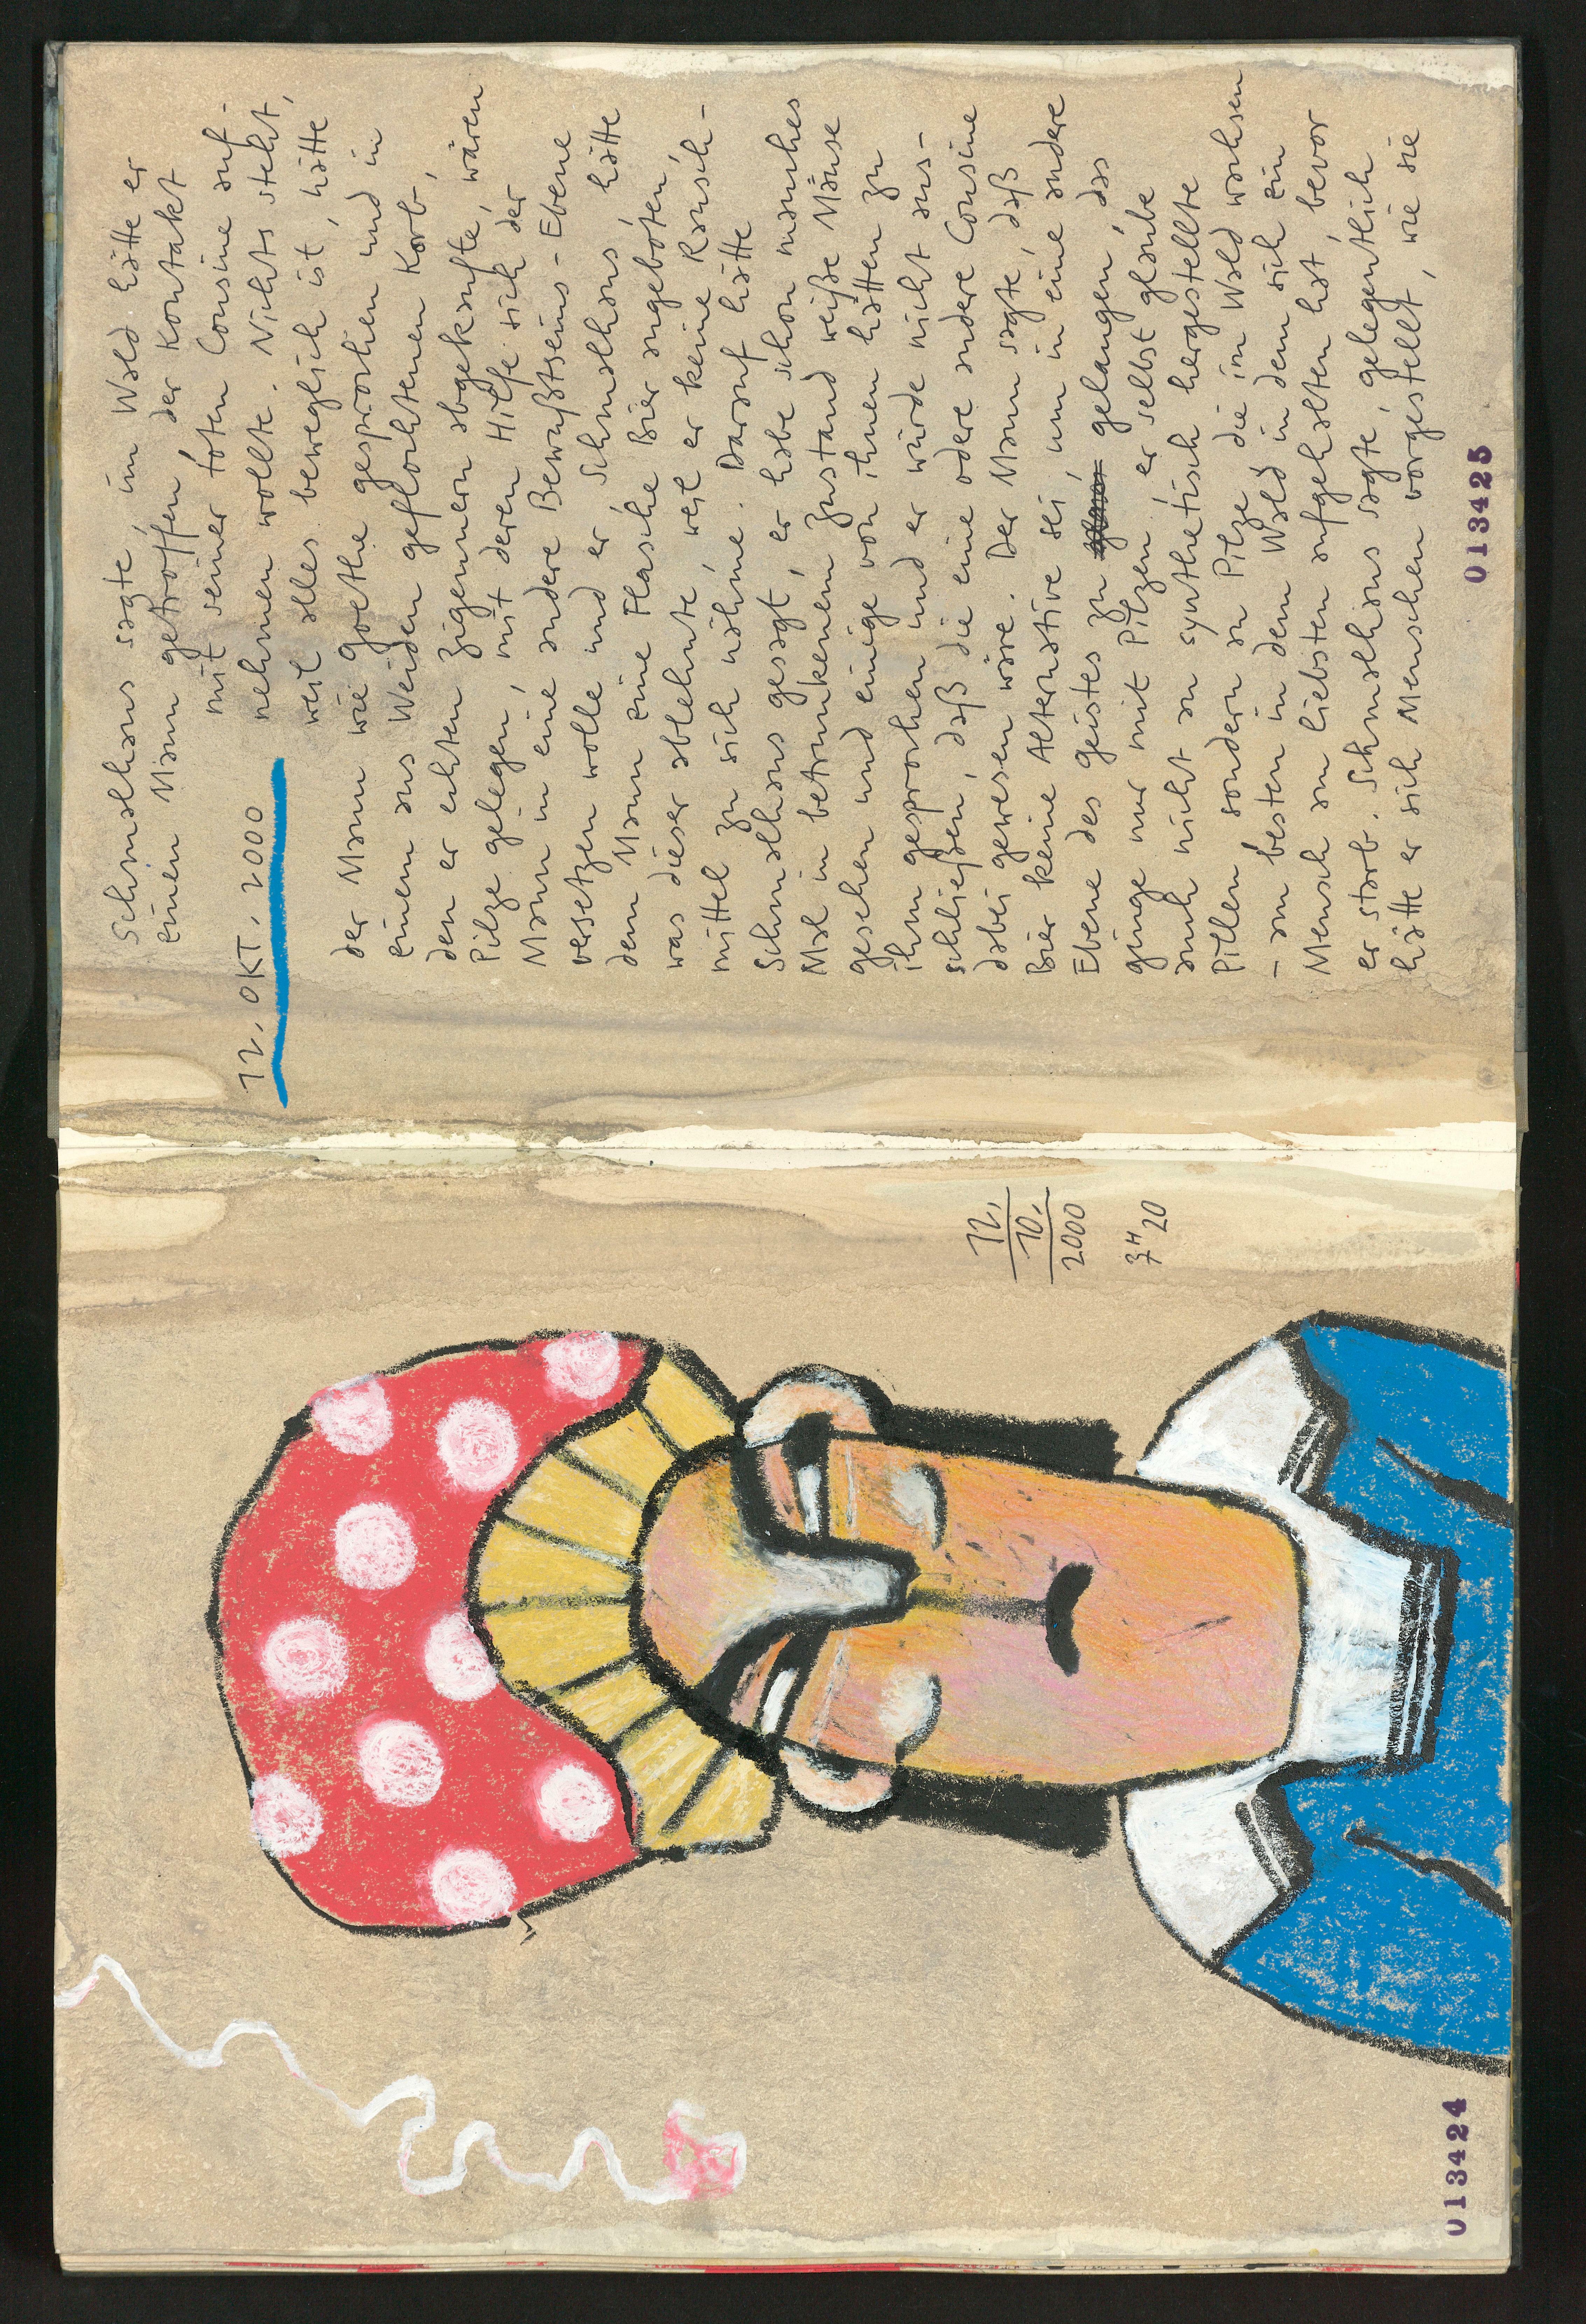 12.
10.
2000
7H20
013424
Schmalhans sagte, im Wald hätte er
einen Mann getroffen, der Kontakt
mit seiner toten Cousine auf-
12. OKT. 2000
nehmen wollte. Nichts steht,
weil alles beweglich ist, hätte
der Mann wie Goethe gesprochen und in
einem aus Weiden geflochtenen Korb,
den er echten Zigeunern abgekaufte, wären
Pilze gelegen, mit deren Hilfe sich der
Mann in eine andere Bewußtseins-Ebene
versetzen wolle und er, Schmalhans, hätte
dem Mann eine Flasche Bier angeboten,
was dieser ablehnte, weil er keine Rausch-
mittel zu sich nähme. Darauf hätte
Schmalhans gesagt, er habe schon manches
Mal in betrunkenem Zustand weiße Mäuse
gesehen und einige von ihnen hätten zu
ihm gesprochen und er würde nicht aus-
schließen, daß die eine odere andere Cousine
dabei gewesen wäre. Der Mann sagte, daß
Bier keine Alternative sei, um in eine andere
Ebene des Geistes zu gelangen, das
ginge nur mit Pilzen, er selbst glaube
auch nicht an synthetisch hergestellte
Pillen sondern an Pilze, die im Wald wachsen
– am besten in dem Wald in dem sich ein
Mensch am liebsten aufgehalten hat, bevor
er starb. Schmalhans sagte, gelegentlich
hätte er sich Menschen vorgestellt, wie sie
013425